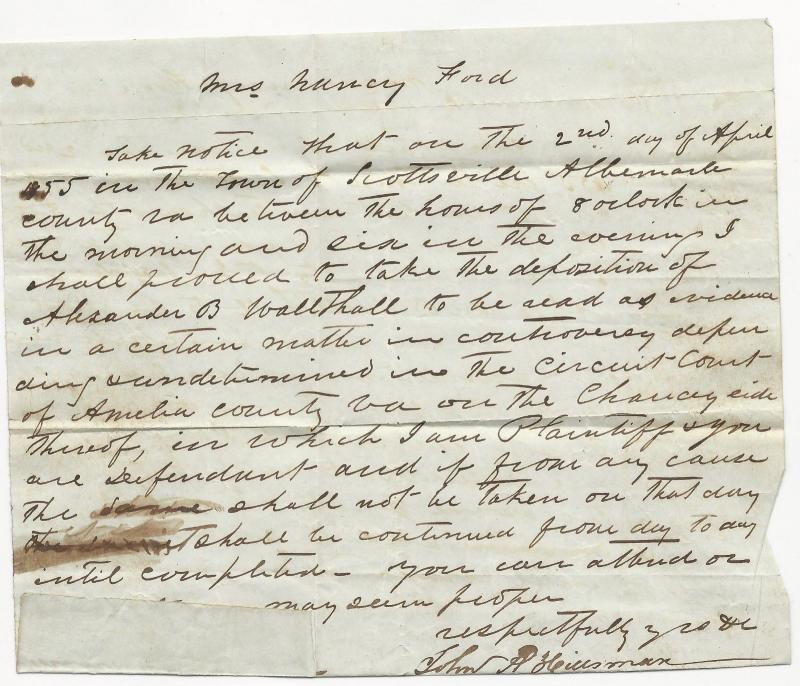 Mrs Nancy Ford
Take notice that on the 2nd day of April
1855 in the Town of Scottsville Albemarle
county va between the hours of 8 oclock in
the morning and six in the evening I
shall proceed to take the deposition of
Alexander B Wallthall to be read as evidence
in a certain matter in controversy depen
ding & undetermined in the Circuit Court
of Amelia county va on the Chancey side
thereof, in which I am Plaintiff & you
are Defendant and if from any cause
the same shall not be taken on that day
shall be continued from day to day
until completed - you can attend or
may seem proper
respectfully yrs &c
John A Hillsman